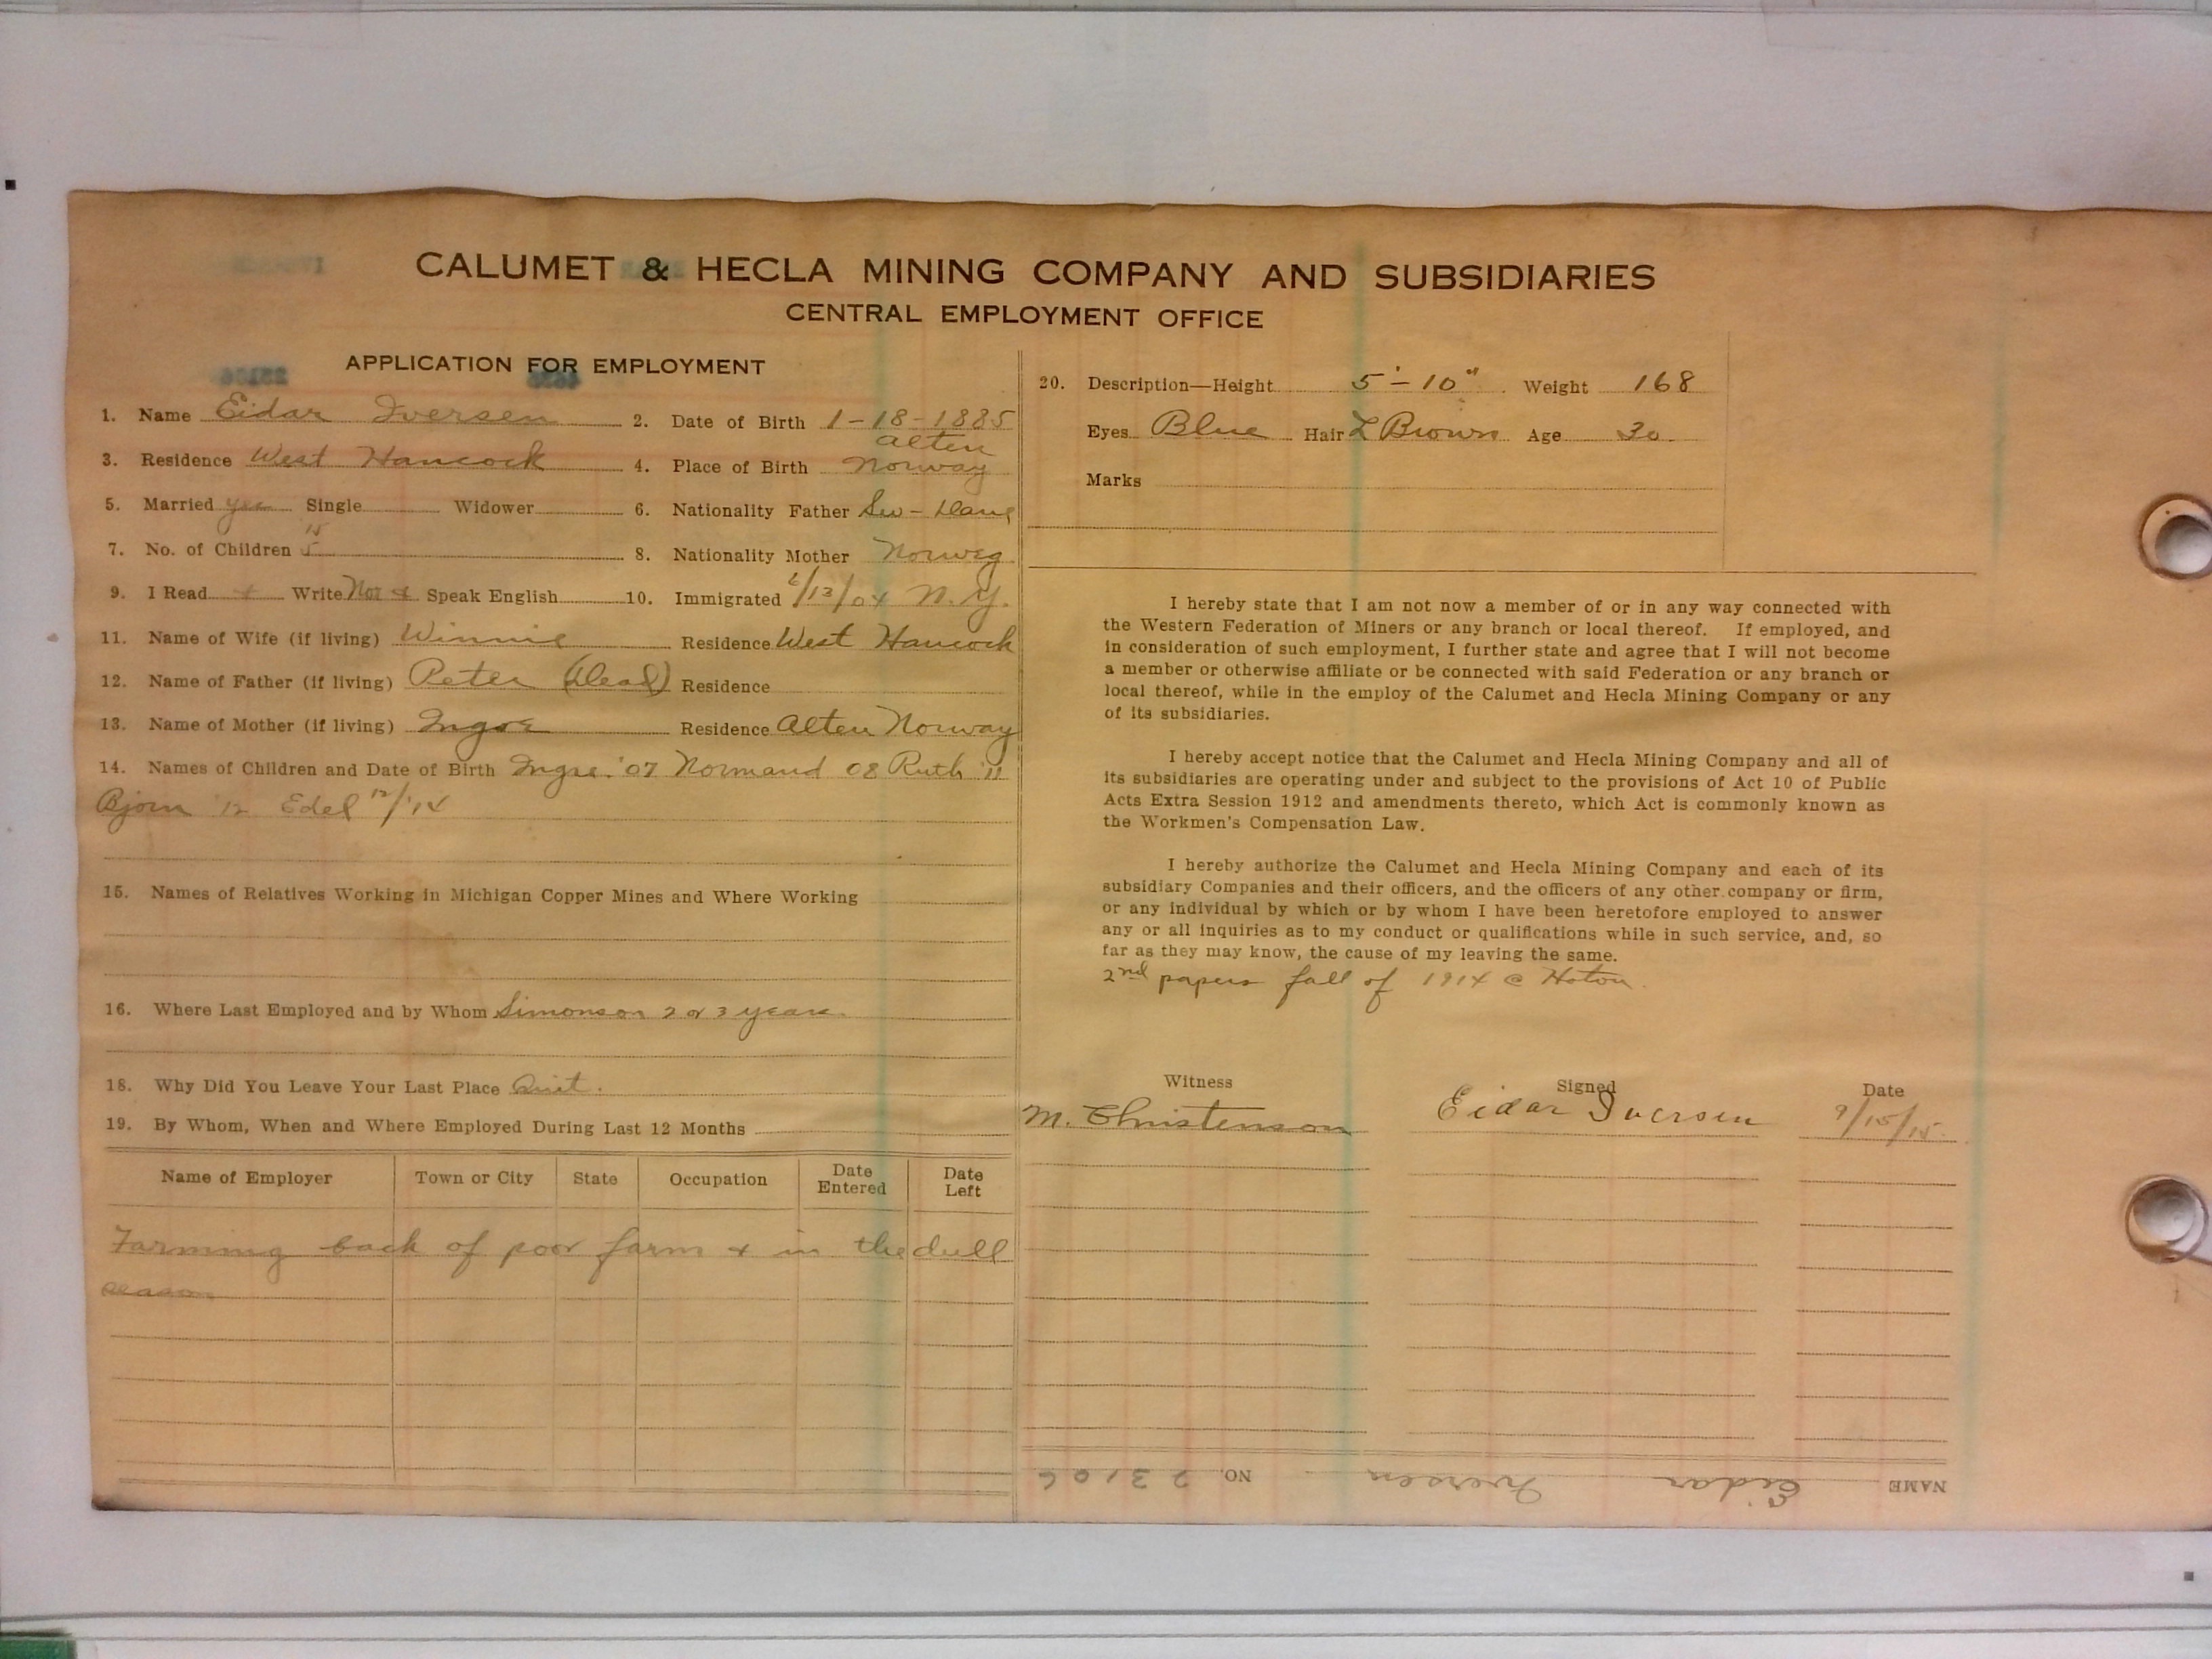 CALUMET & HECLA MINING COMPANY AND SUBSIDIARIES
CENTRAL EMPLOYMENT OFFICE
APPLICATION FOR EMPLOYMENT
1. Name Eidar Iversen 2. Date of Birth 1-18-1885
3. Residence West Hancock 4. Place of Birth Alten Norway
5. Married yes Single Widower 6. Nationality Father Sw - Dane
7. No. of Children 5 8. Nationality Mother Norweg
9. I Read + Write Nor & Speak English 10. Immigrated 6/13/04 N.Y.
11. Name of Wife (if living) Winnie Residence West Hancock
12. Name of Father (if living) Peter (Dead) Residence
13. Name of Mother (if living) Residence Alten Norway
14. Names of Children and Date of Birth '07 Normand 08 Ruth '11
Bjorn '12 Edel 12/'14
15. Names of Relatives Working in Michigan Copper Mines and Where Working
16. Where Last Employed and by Whom Simonson 2 or 3 years.
18. Why Did You Leave Your Last Place Quit.
19. By Whom, When and Where Employed During Last 12 Months
Name of Employer Town or City State Occupation Date Entered Date Left
Farming back of poor farm & in the dull
season
20. Description—Height 5'-10" Weight 168
Eyes Blue Hair L Brown Age 30
Marks
I hereby state that I am not now a member of or in any way connected with
the Western Federation of Miners or any branch or local thereof. If employed, and
in consideration of such employment, I further state and agree that I will not become
a member or otherwise affiliate or be connected with said Federation or any branch or
local thereof, while in the employ of the Calumet and Hecla Mining Company or any
of its subsidiaries.
I hereby accept notice that the Calumet and Hecla Mining Company and all of
its subsidiaries are operating under and subject to the provisions of Act 10 of Public
Acts Extra Session 1912 and amendments thereto, which Act is commonly known as
the Workmen's Compensation Law.
I hereby authorize the Calumet and Hecla Mining Company and each of its
subsidiary Companies and their officers, and the officers of any other company or firm,
or any individual by which or by whom I have been heretofore employed to answer
any or all inquiries as to my conduct or qualifications while in such service, and, so
far as they may know, the cause of my leaving the same.
2nd papers fall of 1914 @ Hoton.
Witness Signed Date
M. Christenson Eidar Iversen 9/15/15.
NAME Eidar Iversen NO. 23106